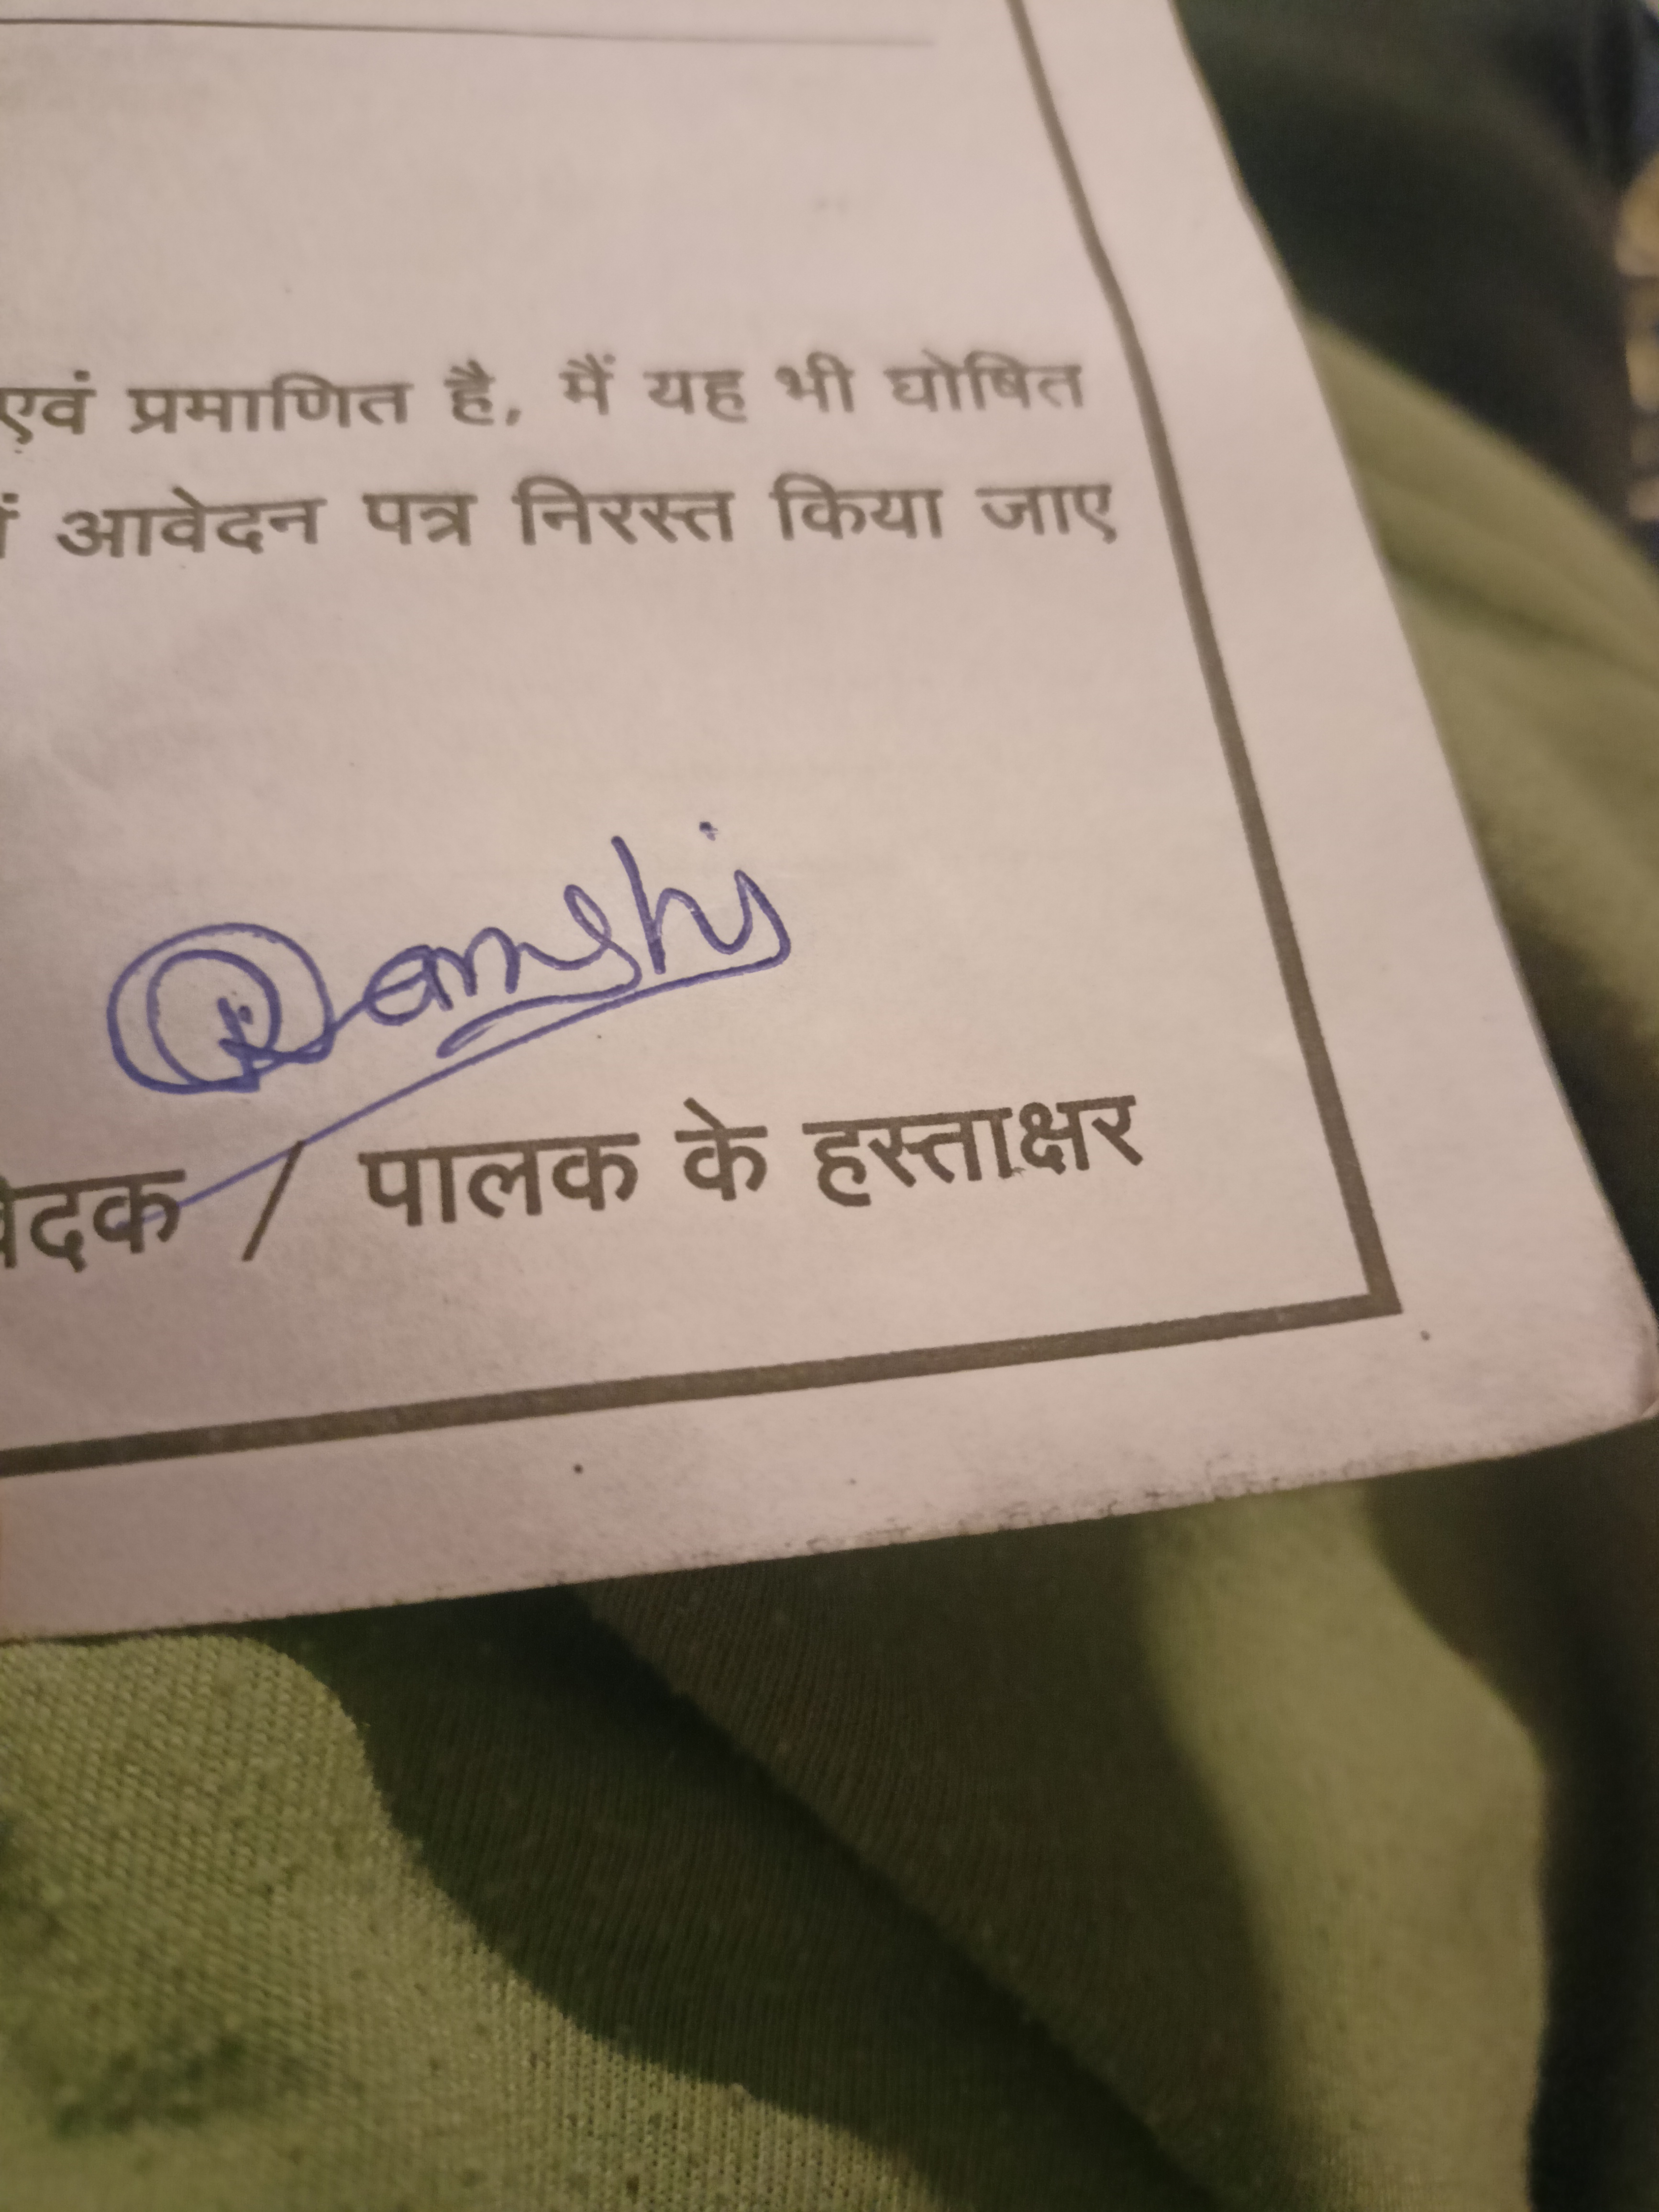 एवं प्रमाणित है, मैं यह भी घोषित
आवेदन पत्र निरस्त किया जाए
/ पालक के हस्ताक्षर